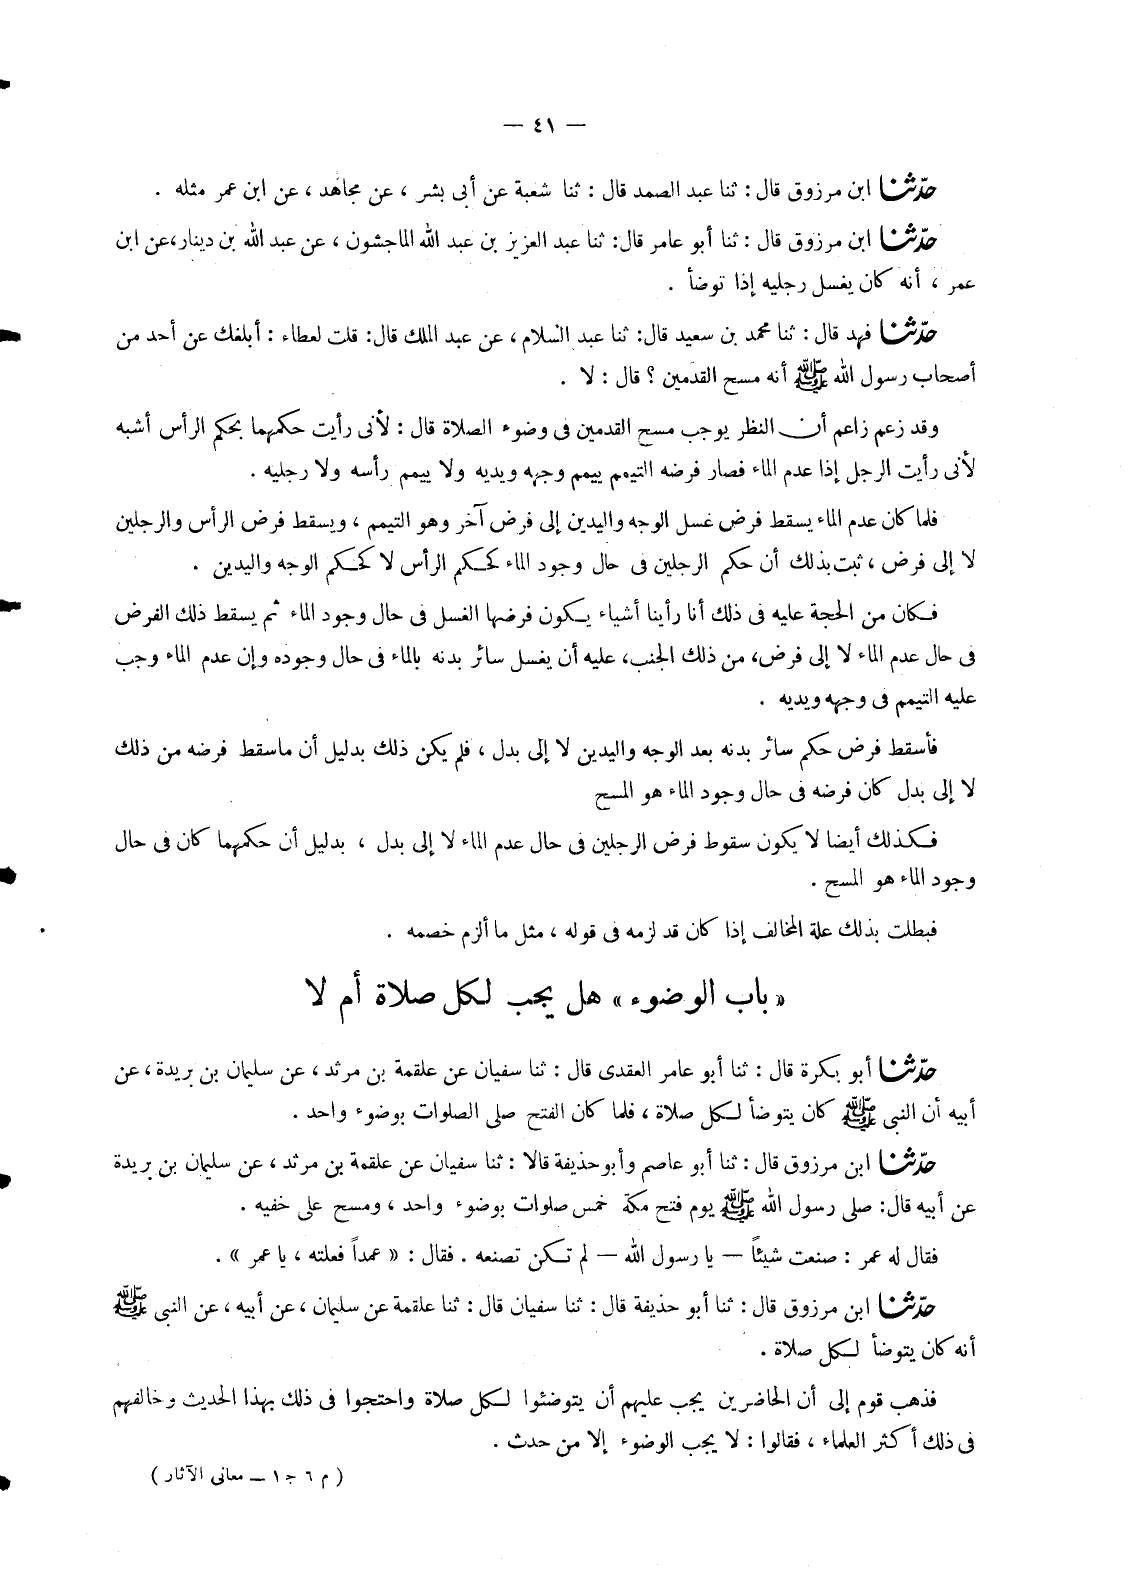 — ٤١ —
حدّثنا ابن مرزوق قال : ثنا عبد الصمد قال : ثنا شعبة عن أبى بشر ، عن مجاهد ، عن ابن عمر مثله .
حدّثنا ابن مرزوق قال : ثنا أبو عامر قال: ثنا عبد العزيز بن عبد الله الماجشون ، عن عبد الله بن دينار،عن ابن
عمر ، أنه كان يغسل رجليه إذا توضأ .
حدّثنا فهد قال : ثنا محمد بن سعيد قال: ثنا عبد السلام ، عن عبد الملك قال: قلت لعطاء : أبلغك عن أحد من
أصحاب رسول الله ﷺ أنه مسح القدمين ؟ قال : لا .
وقد زعم زاعم أن النظر يوجب مسح القدمين فى وضوء الصلاة قال : لأنى رأيت حكمهما بحكم الرأس أشبه
لأنى رأيت الرجل إذا عدم الماء فصار فرضه التيمم ييمم وجهه ويديه ولا ييمم رأسه ولا رجليه .
فلما كان عدم الماء يسقط فرض غسل الوجه واليدين إلى فرض آخر وهو التيمم ، ويسقط فرض الرأس والرجلين
لا إلى فرض ، ثبت بذلك أن حكم الرجلين فى حال وجود الماء كحكم الرأس لا كحكم الوجه واليدين .
فكان من الحجة عليه فى ذلك أنا رأينا أشياء يكون فرضها الغسل فى حال وجود الماء ثم يسقط ذلك الفرض
فى حال عدم الماء لا إلى فرض، من ذلك الجنب، عليه أن يغسل سائر بدنه بالماء فى حال وجوده وإن عدم الماء وجب
عليه التيمم فى وجهه ويديه .
فأسقط فرض حكم سائر بدنه بعد الوجه واليدين لا إلى بدل ، فلم يكن ذلك بدليل أن ماسقط فرضه من ذلك
لا إلى بدل كان فرضه فى حال وجود الماء هو المسح
فكذلك أيضا لا يكون سقوط فرض الرجلين فى حال عدم الماء لا إلى بدل ، بدليل أن حكمهما كان فى حال
وجود الماء هو المسح .
فبطلت بذلك علة المخالف إذا كان قد لزمه فى قوله ، مثل ما ألزم خصمه .
« باب الوضوء » هل يجب لكل صلاة أم لا
حدّثنا أبو بكرة قال : ثنا أبو عامر العقدى قال : ثنا سفيان عن علقمة بن مرثد ، عن سليمان بن بريدة ، عن
أبيه أن النبى ﷺ كان يتوضأ لكل صلاة ، فلما كان الفتح صلى الصلوات بوضوء واحد .
حدّثنا ابن مرزوق قال : ثنا أبو عاصم وأبوحذيفة قالا : ثنا سفيان عن علقمة بن مرثد ، عن سليمان بن بريدة
عن أبيه قال: صلى رسول الله ﷺ يوم فتح مكة خمس صلوات بوضوء واحد ، ومسح على خفيه .
فقال له عمر : صنعت شيئاً — يا رسول الله — لم تكن تصنعه . فقال : « عمداً فعلته ، يا عمر » .
حدّثنا ابن مرزوق قال : ثنا أبو حذيفة قال : ثنا سفيان قال : ثنا علقمة عن سليمان ، عن أبيه ، عن النبى ﷺ
أنه كان يتوضأ لكل صلاة .
فذهب قوم إلى أن الحاضرين يجب عليهم أن يتوضئوا لكل صلاة واحتجوا فى ذلك بهذا الحديث وخالفهم
فى ذلك أكثر العلماء ، فقالوا : لا يجب الوضوء إلا من حدث .
( م ٦ ج ١ — معانى الآثار )